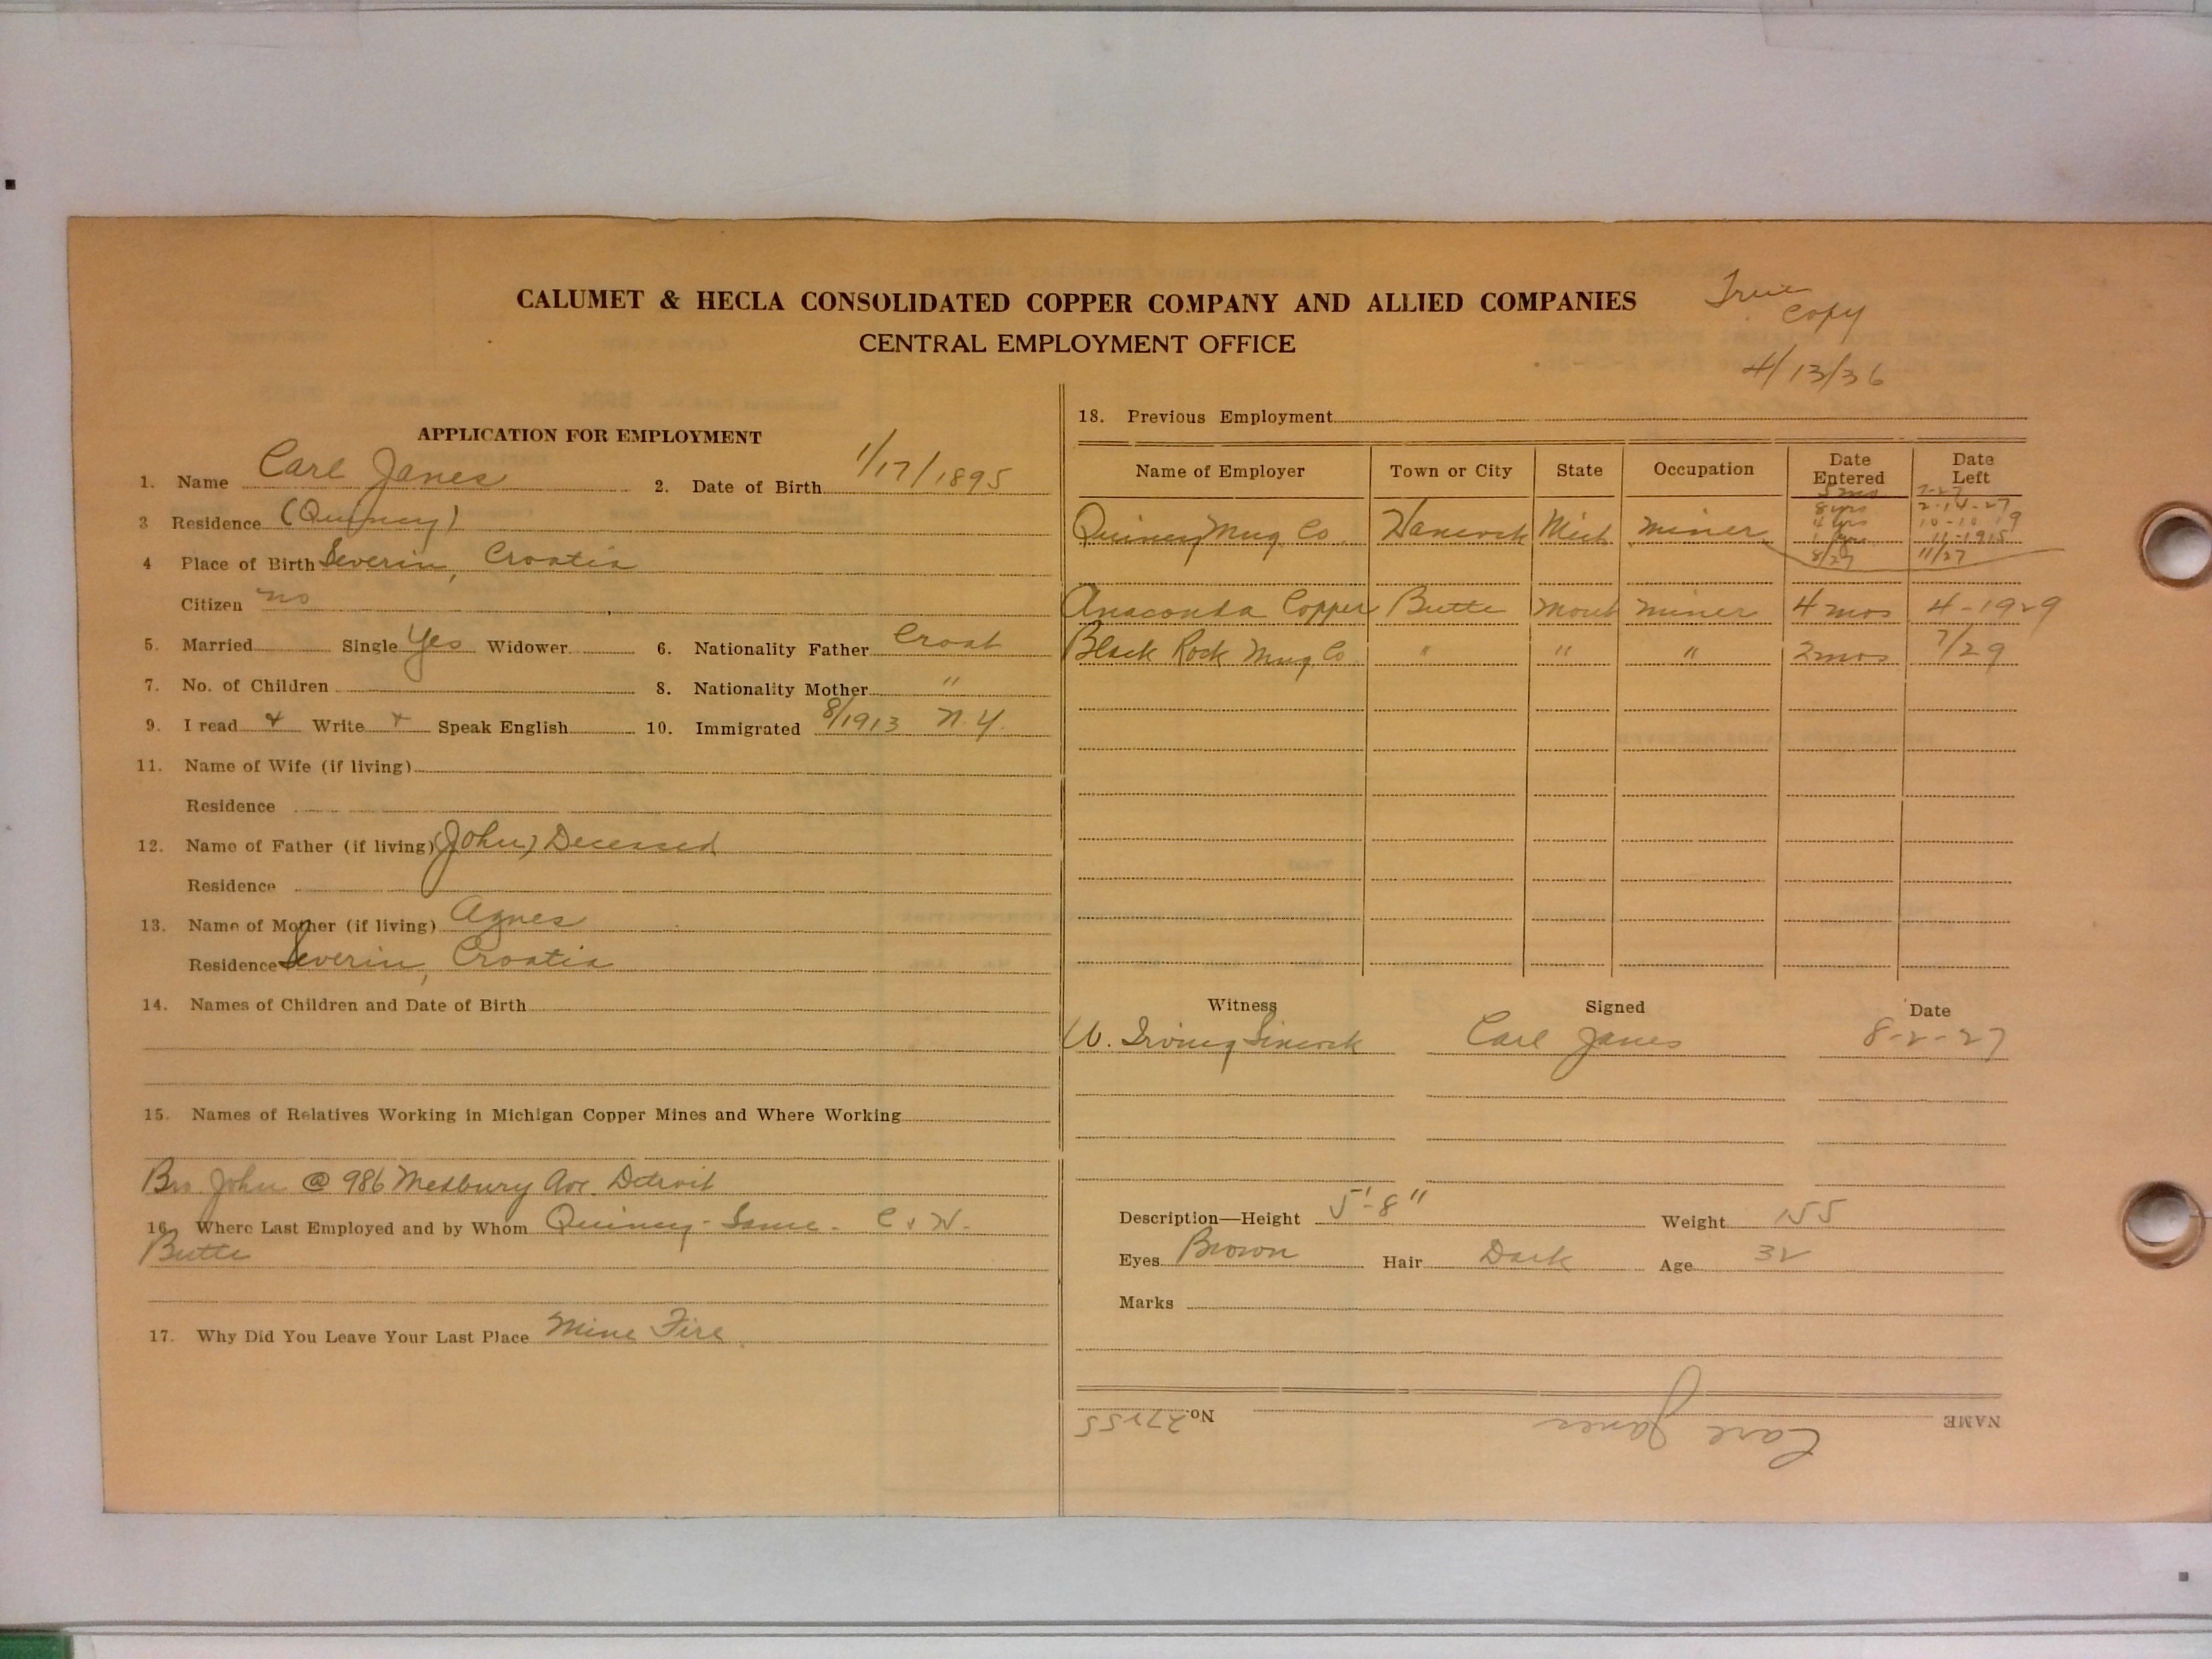 CALUMET & HECLA CONSOLIDATED COPPER COMPANY AND ALLIED COMPANIES
True Copy
CENTRAL EMPLOYMENT OFFICE
4/13/36
APPLICATION FOR EMPLOYMENT
1. Name Carl Janes 2. Date of Birth 1/17/1895
3 Residence (Quincy)
4 Place of Birth Severin, Croatia
Citizen no
5. Married Single Yes Widower 6. Nationality Father Croat
7. No. of Children 8. Nationality Mother "
9. I read + Write + Speak English 10. Immigrated 8/1913 N.Y.
11. Name of Wife (if living)
Residence
12. Name of Father (if living) (John) Decessed
Residence
13. Name of Mother (if living) Agnes
Residence Severin, Croatia
14. Names of Children and Date of Birth
15. Names of Relatives Working in Michigan Copper Mines and Where Working
Bro. John @ 986 Medbury Ave. Detroit
16. Where Last Employed and by Whom Quincy - Same - C & H -
Butte
17. Why Did You Leave Your Last Place Mine Fire
18. Previous Employment
Name of Employer Town or City State Occupation Date Entered Date Left
5 mo 7-27
8 yrs 2-14-27
Quincy Mng Co. Hancock Mich miner 4 yrs 10-10-19
11-1915
8/27 11/27
Anaconda Copper Butte Mont miner 4 mos 4-1929
Black Rock Mng Co " " " 2 mos 7/29
Witness Signed Date
W. Irving Sincock Carl Janes 8-2-27
Description—Height 5'-8" Weight 155
Eyes Brown Hair Dark Age 32
Marks
NAME Carl Janes No. 27255